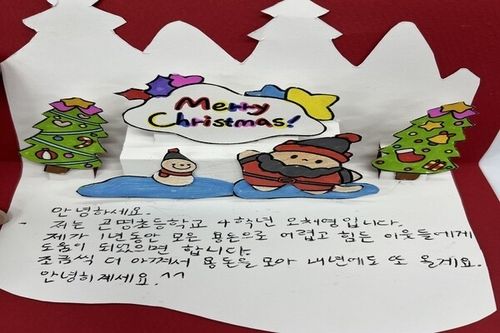 Merry
Christmas!
안녕하세요.
저는 곤명초등학교 4학년 오채열입니다.
제가 1년동안 모은 용돈으로 어렵고 힘든 이웃들에게
도움이 되었으면 합니다.
조금씩 더 아껴서 용돈을 모아 내년에도 또 올게요.
안녕히계세요.^^